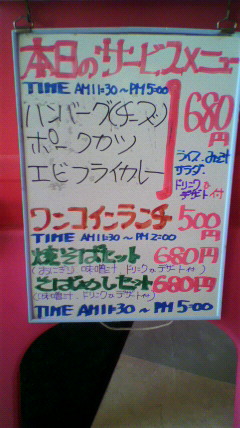 本日のサービスメニュー
TIME AM11:30~PM5:00
ハンバーグ(チーズ)
ポークカツ
エビフライカレー
680円
ライス、みそ汁
サラダ、
ドリンク
デザート付
ワンコインランチ 500円
TIME AM11:30~PM2:00
焼そばセット 680円
(おにぎり 味噌汁、ドリンク、デザート付)
そばめしセット 680円
(味噌汁、ドリンク、デザート付)
TIME AM11:30~PM5:00